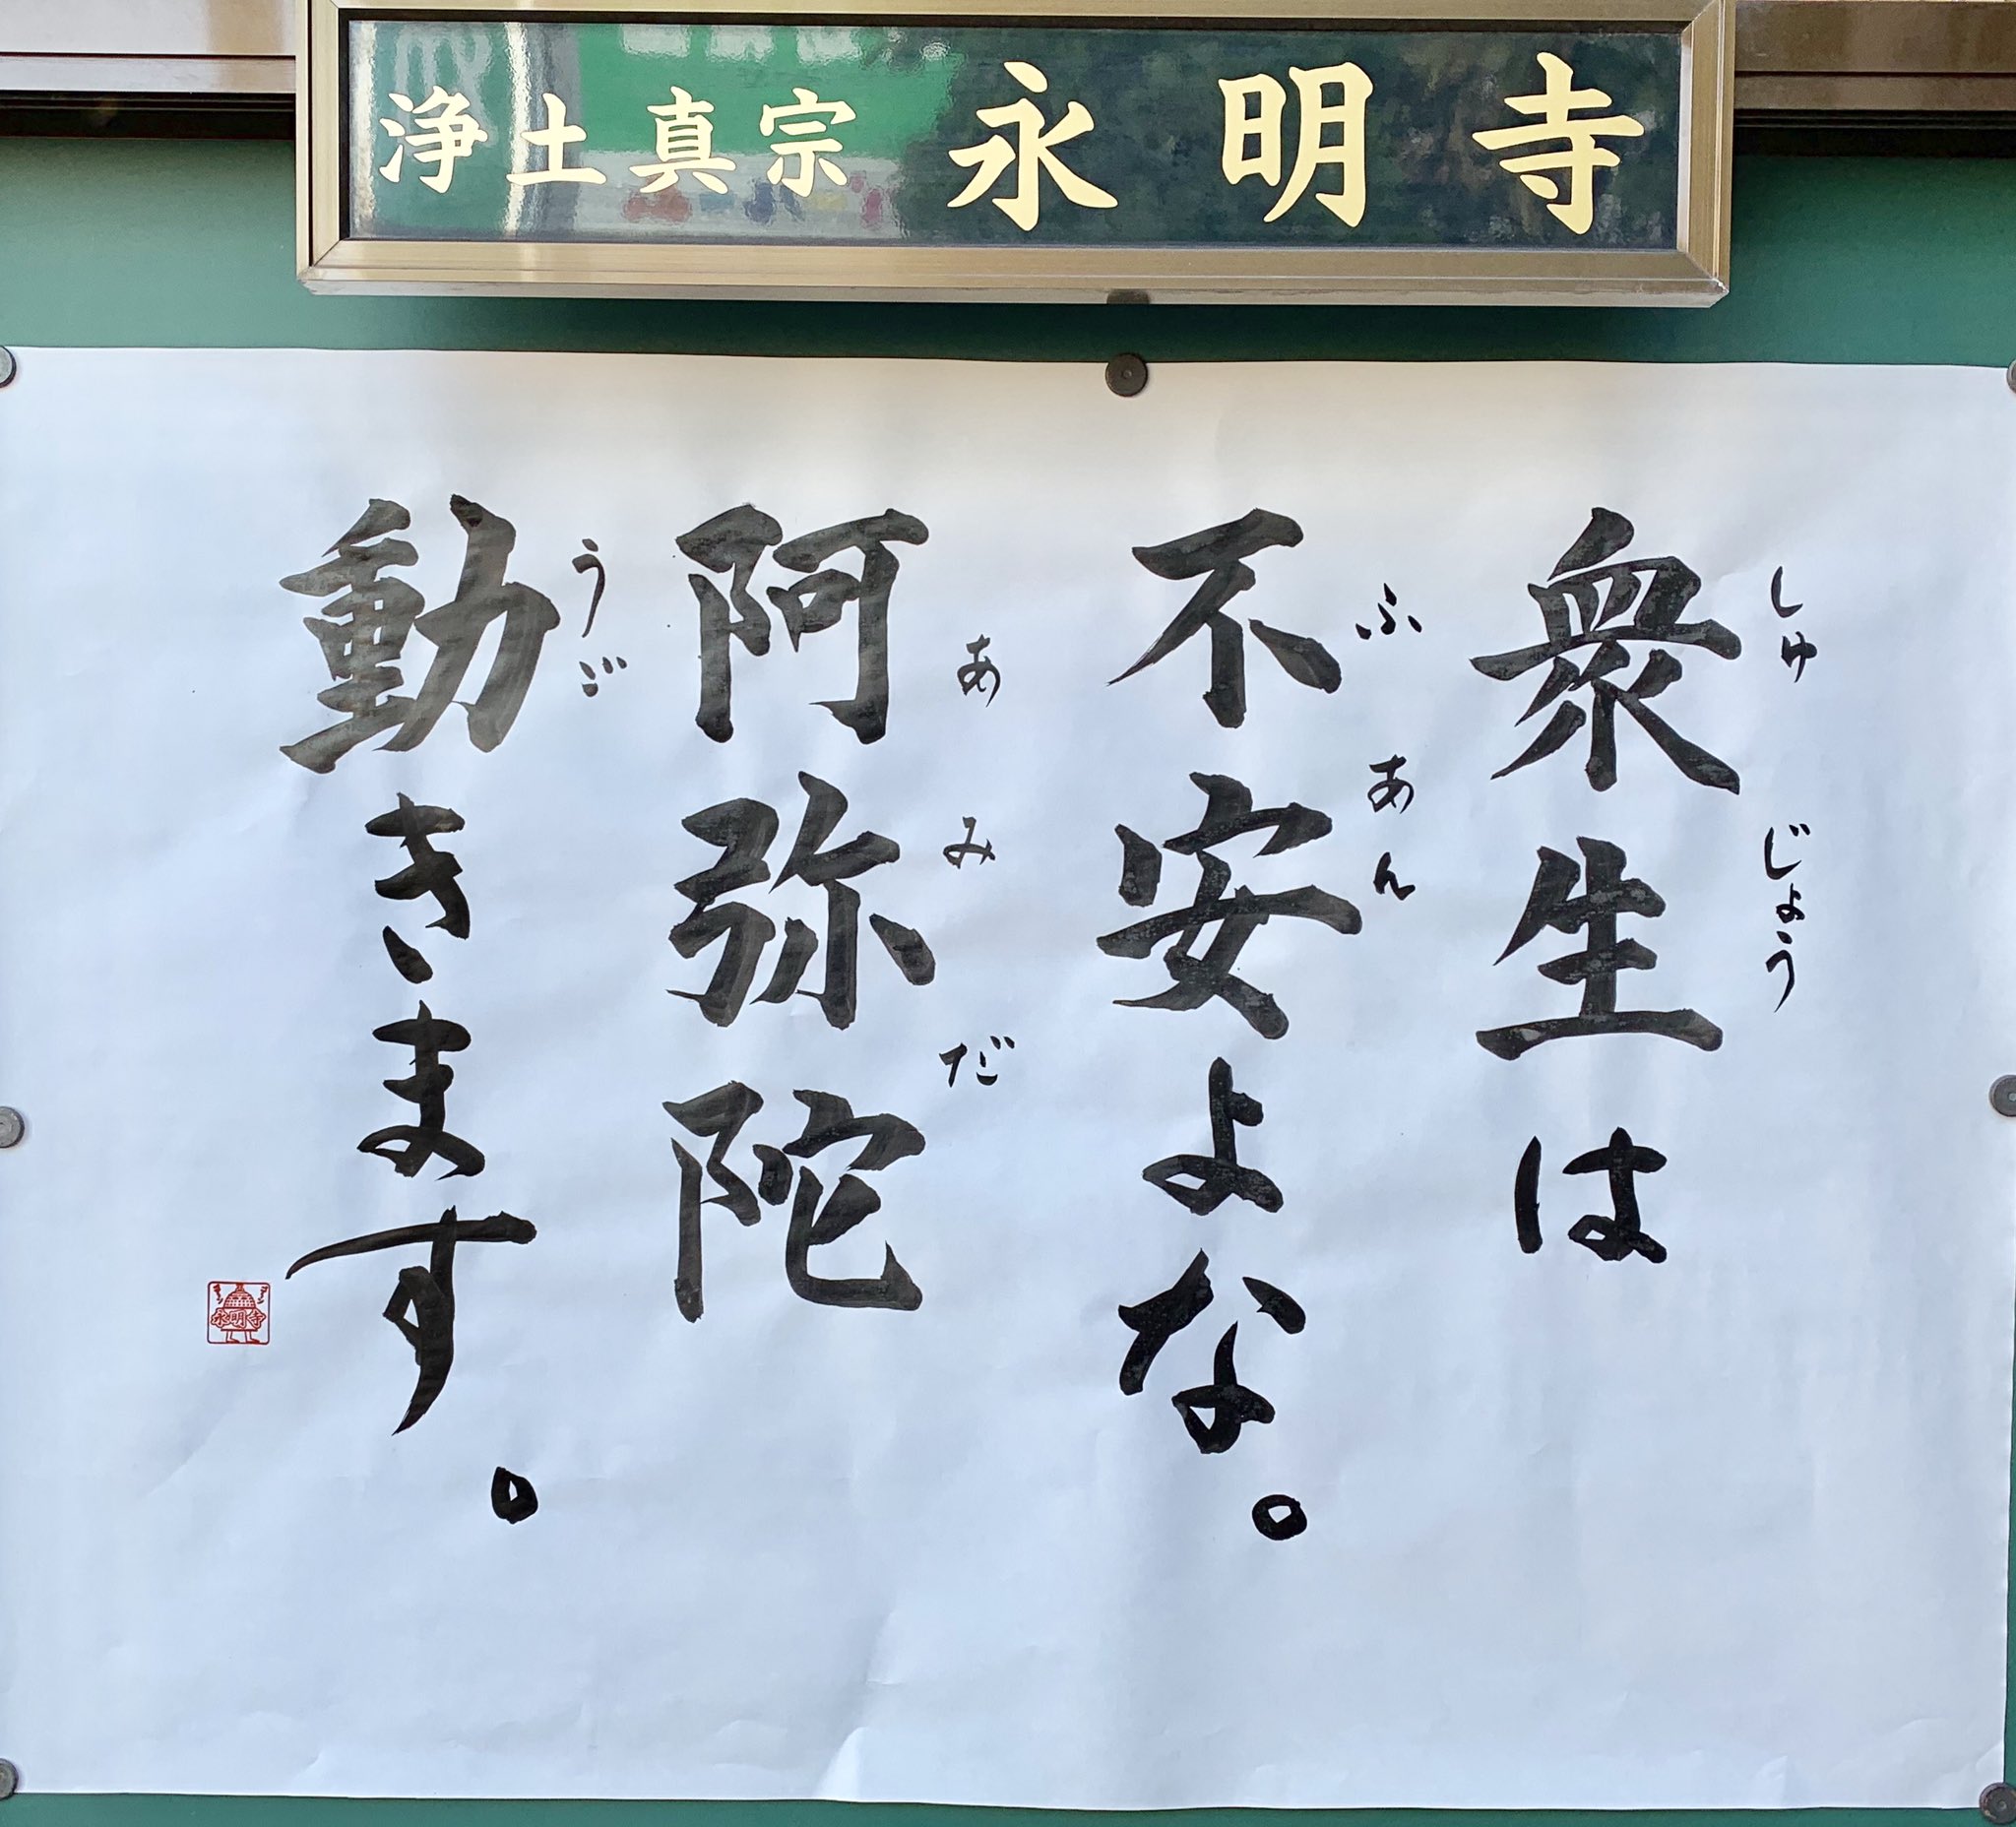 浄土真宗 永明寺
衆生は
しゅじょう
不安よな。
ふあん
阿弥陀
あみだ
動きます。
うご
永明寺